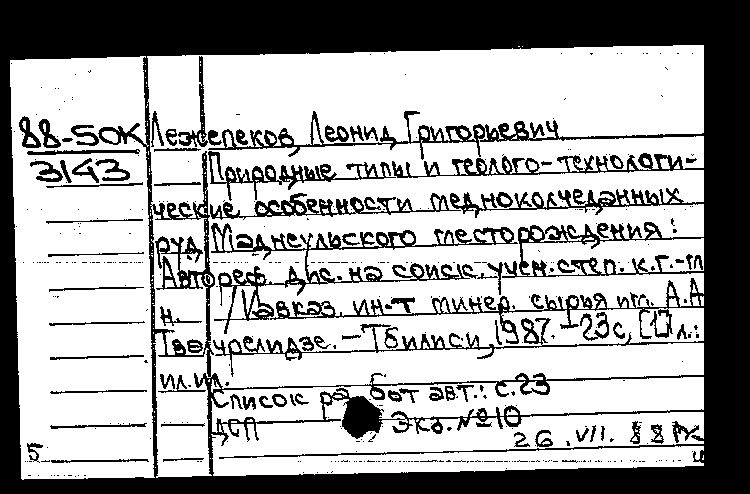 88-50К Лежепеков, Леонид Григорьевич
3143 Природные типы и геолого-технологи-
ческие особенности медноколчеданных
руд Маднеульского месторождения:
Автореф. дис. на соиск. учен. степ. к.г.-м
н. /Кавказ. ин-т минер. сырья им. А.А
Твалчрелидзе. - Тбилиси, 1987. - 23с, [1] л.:
ил.
Список работ авт.: с.23
ДСП Экз. №210
26.VII.88
5